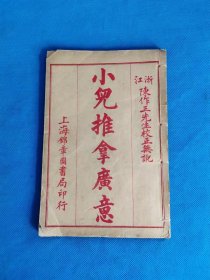 浙江
陳作三先生校正無訛
小兒推拿廣意
上海錦章圖書局印行